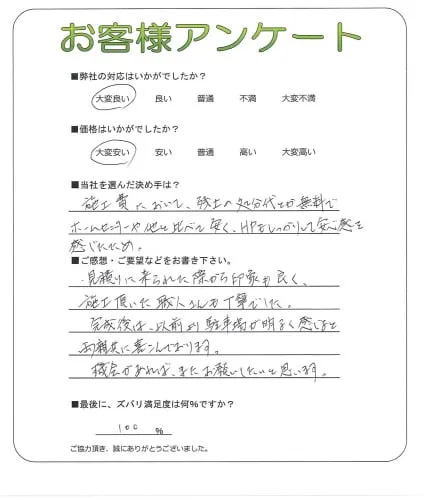 お客様アンケート
■弊社の対応はいかがでしたか？
大変良い 良い 普通 不満 大変不満
■価格はいかがでしたか？
大変安い 安い 普通 高い 大変高い
■当社を選んだ決め手は？
施工費において、残土の処分代とか無料で
ホームセンターや他と比べて安く、HPもしっかりして安心感を
感じたため。
■ご感想・ご要望などをお書き下さい。
見積りに来られた際から印象も良く、
施工頂いた職人さんも丁寧でした。
完成後は、以前より駐車場が明るく感じると
喜んでおります。
機会があれば、またお願いしたいと思います。
■最後に、ズバリ満足度は何％ですか？
100 ％
ご協力頂き、誠にありがとうございました。